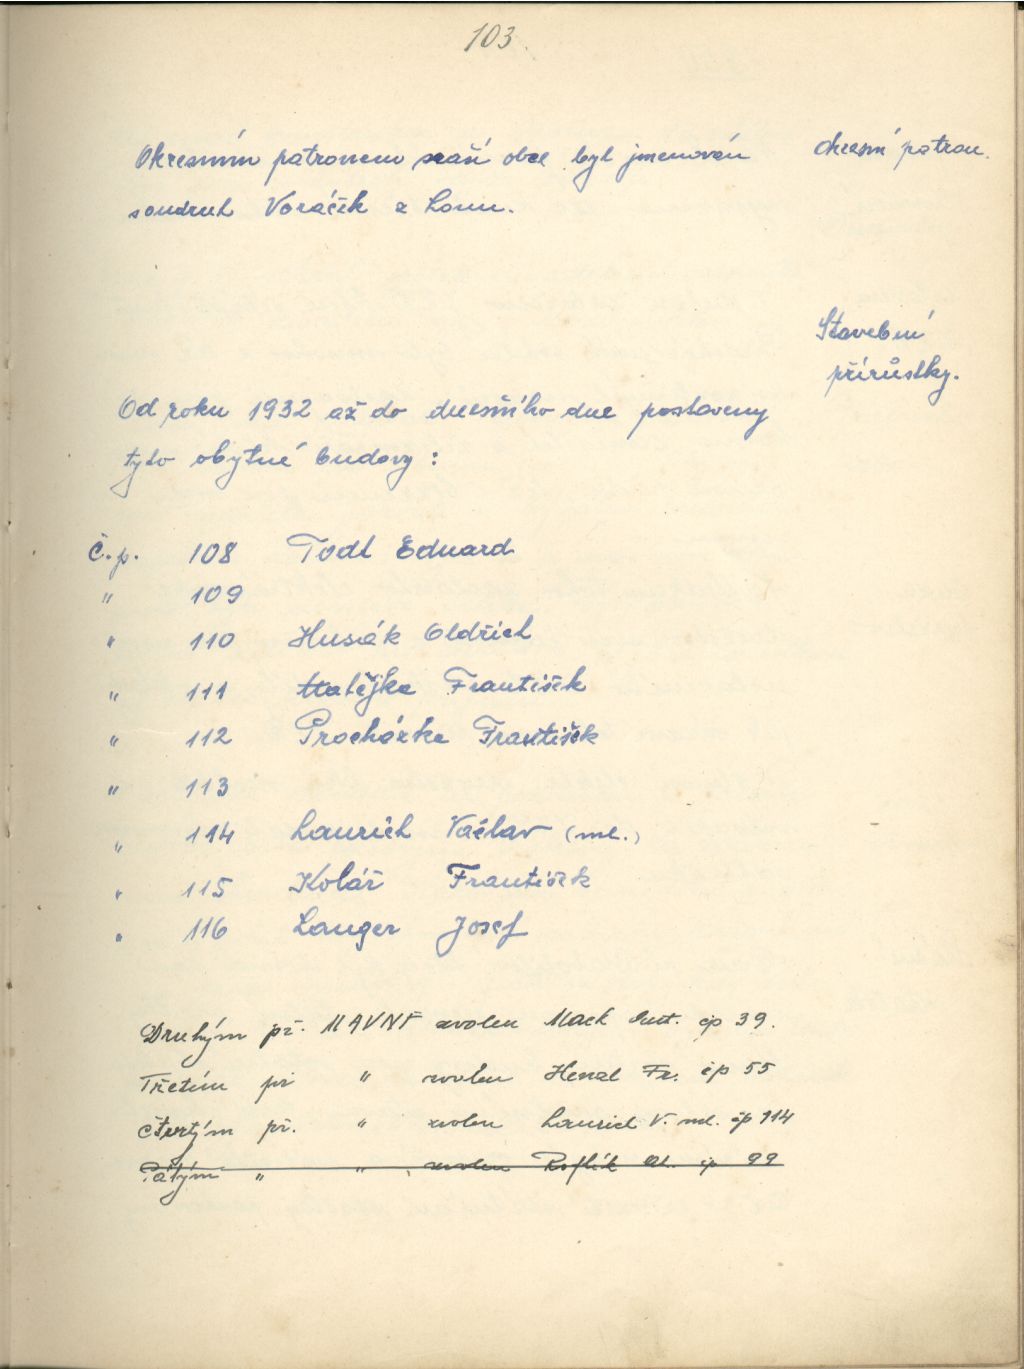 103
Okresním patronem naší obce byl jmenován
soudruh Voráček z Lomu.
okresní patron.
Stavební
přírůstky.
Od roku 1932 až do dnešního dne postaveny
tyto obytné budovy :
Č.p. 108 Todl Eduard
" 109
" 110 Husák Oldřich
" 111 Matějka František
" 112 Procházka František
" 113
" 114 Laurich Václav (ml.)
" 115 Kolář František
" 116 Langer Josef
Druhým př. MAVNF zvolen Mack čp 39.
Třetím př " zvolen Henzl Fr. čp 55
čtvrtým př. " zvolen Laurich V. ml. čp 114
Pátým " " zvolen čp 99